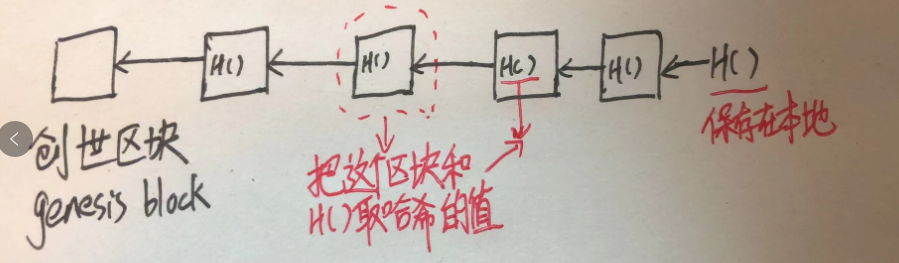 H() H() H() H() H()
保存在本地
创世区块
genesis block
把这个区块和
H()取哈希的值